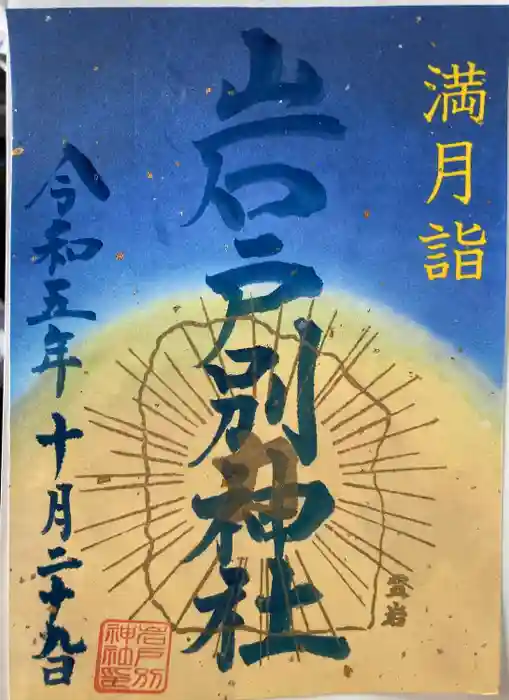 満月詣
岩戸別神社
令和五年十月二十九日
霊岩
岩戸別
神社印